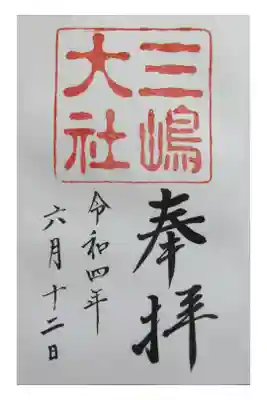 三嶋
大社
奉拝
令和四年
六月十二日